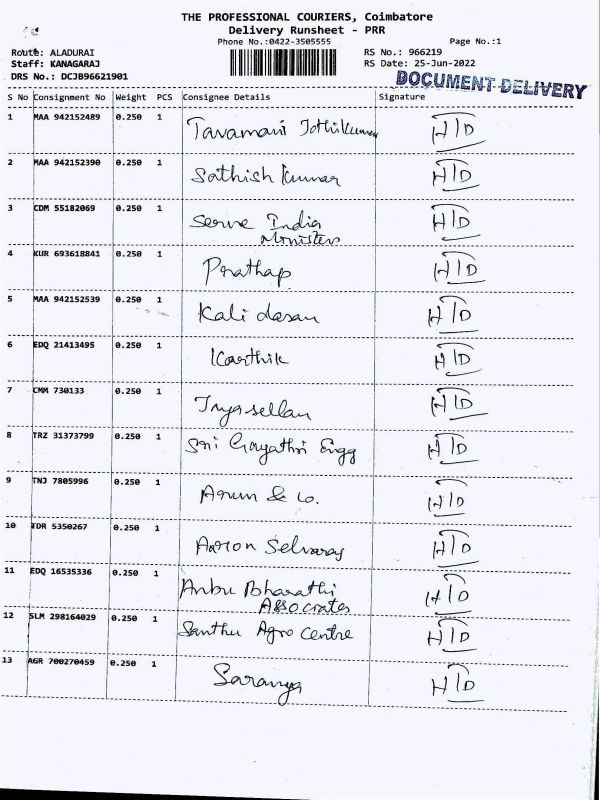 THE PROFESSIONAL COURIERS, Coimbatore
Delivery Runsheet - PRR
Phone No.:0422-3505555
Page No.:1
Route: ALADURAI
RS No.: 966219
Staff: KANAGARAJ
RS Date: 25-Jun-2022
DRS No.: DCJB96621901
DOCUMENT DELIVERY
S No Consignment No Weight PCS Consignee Details Signature
1 MAA 942152489 0.250 1 Tavamani Jothikumar H/D
2 MAA 942152390 0.250 1 Sathish Kumar H/D
3 CDM 55182069 0.250 1 Serve India H/D
Ministers
4 KUR 693618841 0.250 1 Prathap H/D
5 MAA 942152539 0.250 1 Kali dasan H/D
6 EDQ 21413495 0.250 1 Karthik H/D
7 CMM 730133 0.250 1 H/D
8 TRZ 31373799 0.250 1 Sri Gayathri Engg H/D
9 TNJ 7805996 0.250 1 Arun & Co. H/D
10 TDR 5350267 0.250 1 Aaron Selvaraj H/D
11 EDQ 16535336 0.250 1 Anbu Bharathi H/D
Associates
12 SLM 298164029 0.250 1 Santhu Agro Centre H/D
13 AGR 700270459 0.250 1 Saranya H/D